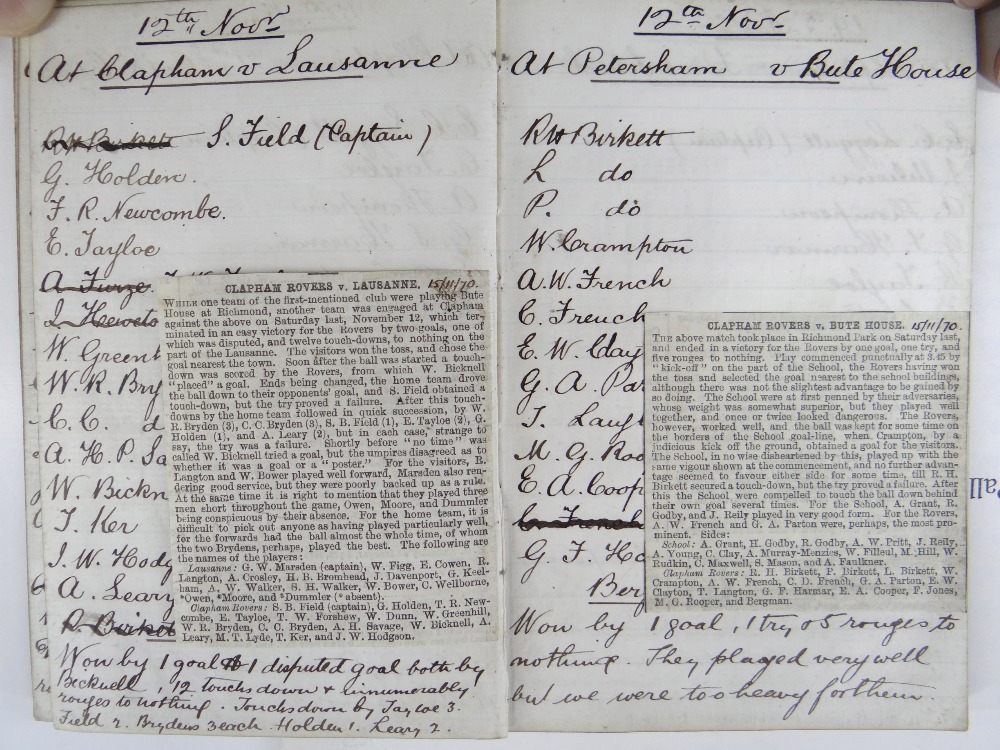 12th Novr
At Clapham v Lausanne
RH Birkett S. Field (Captain)
G. Holden.
F. R. Newcombe.
E. Tayloe
A Furze
J. Hewets
W. Greenh
W. R. Bry
C. C. d
A. H. P. Sa
W. Bickn
T. Ker
J. W. Hodg
A. Leary
R. Birket
CLAPHAM ROVERS v. LAUSANNE. 15/11/70.
WHILE one team of the first-mentioned club were playing Bute
House at Richmond, another team was engaged at Clapham
against the above on Saturday last, November 12, which ter-
minated in an easy victory for the Rovers by two goals, one of
which was disputed, and twelve touch-downs, to nothing on the
part of the Lausanne. The visitors won the toss, and chose the
goal nearest the town. Soon after the ball was started a touch-
down was scored by the Rovers, from which W. Bicknell
"placed" a goal. Ends being changed, the home team drove
the ball down to their opponents' goal, and S. Field obtained a
touch-down, but the try proved a failure. After this touch-
downs by the home team followed in quick succession, by W.
R. Bryden (3), C. C. Bryden (3), S. B. Field (1), E. Tayloe (2), G.
Holden (1), and A. Leary (2), but in each case, strange to
say, the try was a failure. Shortly before "no time" was
called W. Bicknell tried a goal, but the umpires disagreed as to
whether it was a goal or a "poster." For the visitors, R.
Langton and W. Bower played well forward, Marsden also ren-
dering good service, but they were poorly backed up as a rule.
At the same time it is right to mention that they played three
men short throughout the game, Owen, Moore, and Dummler
being conspicuous by their absence. For the home team, it is
difficult to pick out anyone as having played particularly well,
for the forwards had the ball almost the whole time, of whom
the two Brydens, perhaps, played the best. The following are
the names of the players:
Lausanne: G. W. Marsden (captain), W. Figg, E. Cowen, R.
Langton, A. Crosley, H. B. Bromhead, J. Davenport, G. Keel-
ham, A. W. Walker, S. H. Walker, W. Bower, C. Wellborne,
*Owen, *Moore, and *Dummler (* absent).
Clapham Rovers: S. B. Field (captain), G. Holden, T. R. New-
combe, E. Tayloe, T. W. Forshew, W. Dunn, W. Greenhill,
W. R. Bryden, C. C. Bryden, A. H. Savage, W. Bicknell, A.
Leary, M. T. Lyde, T. Ker, and J. W. Hodgson.
Won by 1 goal & 1 disputed goal both by
Becknell, 12 touchsdown & innumerably
rouges to nothing. Touchsdown by Tayloe 3.
Field 2. Brydens 3 each Holden 1. Leary 2.
12th Novr
At Petersham v Bute House
RH Birkett
L do
P. do
W. Crampton
A. W. French
C. French
E. W. Clay
G. A. Par
T. Laugt
M. G. Roo
E. A. Coop
C. French
G. F. Ha
Berg
CLAPHAM ROVERS v. BUTE HOUSE. 15/11/70.
THE above match took place in Richmond Park on Saturday last,
and ended in a victory for the Rovers by one goal, one try, and
five rouges to nothing. Play commenced punctually at 3.45 by
"kick-off" on the part of the School, the Rovers having won
the toss and selected the goal nearest to the school buildings,
although there was not the slightest advantage to be gained by
so doing. The School were at first penned by their adversaries,
whose weight was somewhat superior, but they played well
together, and once or twice looked dangerous. The Rovers,
however, worked well, and the ball was kept for some time on
the borders of the School goal-line, when Crampton, by a
judicious kick off the ground, obtained a goal for the visitors.
The School, in no wise disheartened by this, played up with the
same vigour shewn at the commencement, and no further advan-
tage seemed to favour either side for some time, till R. H.
Birkett secured a touch-down, but the try proved a failure. After
this the School were compelled to touch the ball down behind
their own goal several times. For the School, A. Grant, R.
Godby, and J. Reily played in very good form. For the Rovers,
A. W. French and G. A. Parton were, perhaps, the most pro-
minent. Sides:
School: A. Grant, H. Godby, R. Godby, A. W. Pritt, J. Reily,
A. Young, C. Clay, A. Murray-Menzies, W. Filleul, M. Hill, W.
Rudkin, C. Maxwell, S. Mason, and A. Faulkner.
Clapham Rovers: R. H. Birkett, P. Birkett, L. Birkett, W.
Crampton, A. W. French, C. D. French, G. A. Parton, E. W.
Clayton, T. Langton, G. F. Harmar, E. A. Cooper, F. Jones,
M. G. Rooper, and Bergman.
Won by 1 goal, 1 try & 5 rouges to
nothing. They played very well
but we were too heavy for them.
all